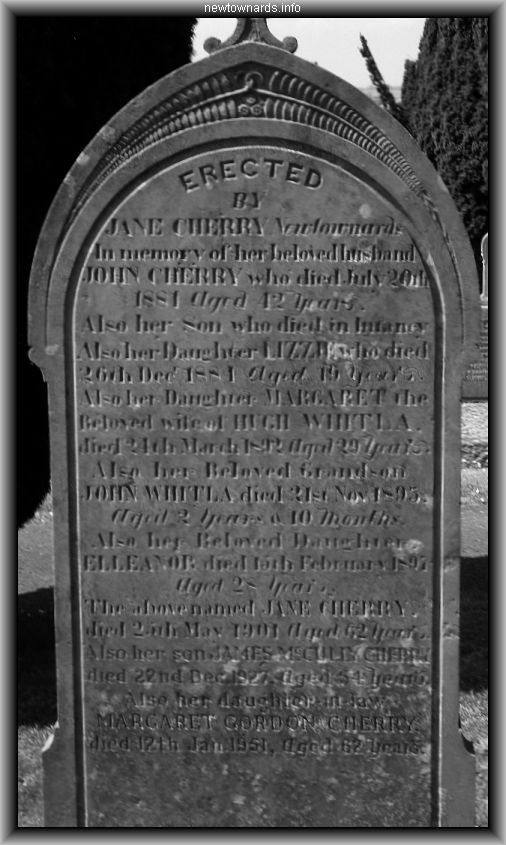 newtownards.info
ERECTED
BY
JANE CHERRY Newtownards
In memory of her beloved husband
JOHN CHERRY who died July 20th
1881 Aged 42 Years.
Also her Son who died in Infancy
Also her Daughter LIZZIE who died
26th Decr 1884 Aged 19 Years.
Also her Daughter MARGARET the
Beloved wife of HUGH WHITLA.
died 24th March 1892 Aged 29 Years.
Also her Beloved Grandson
JOHN WHITLA died 21st Novr 1895,
Aged 2 Years & 10 Months.
Also her Beloved Daughter
ELLEANOR died 15th February 1897
Aged 28 Years.
The above named JANE CHERRY,
died 25th May 1901 Aged 62 Years.
Also her son JAMES McCULLY CHERRY
died 22nd Dec. 1927, Aged 54 Years.
Also her daughter-in-law
MARGARET GORDON CHERRY.
died 12th Jan. 1951, Aged 82 Years.